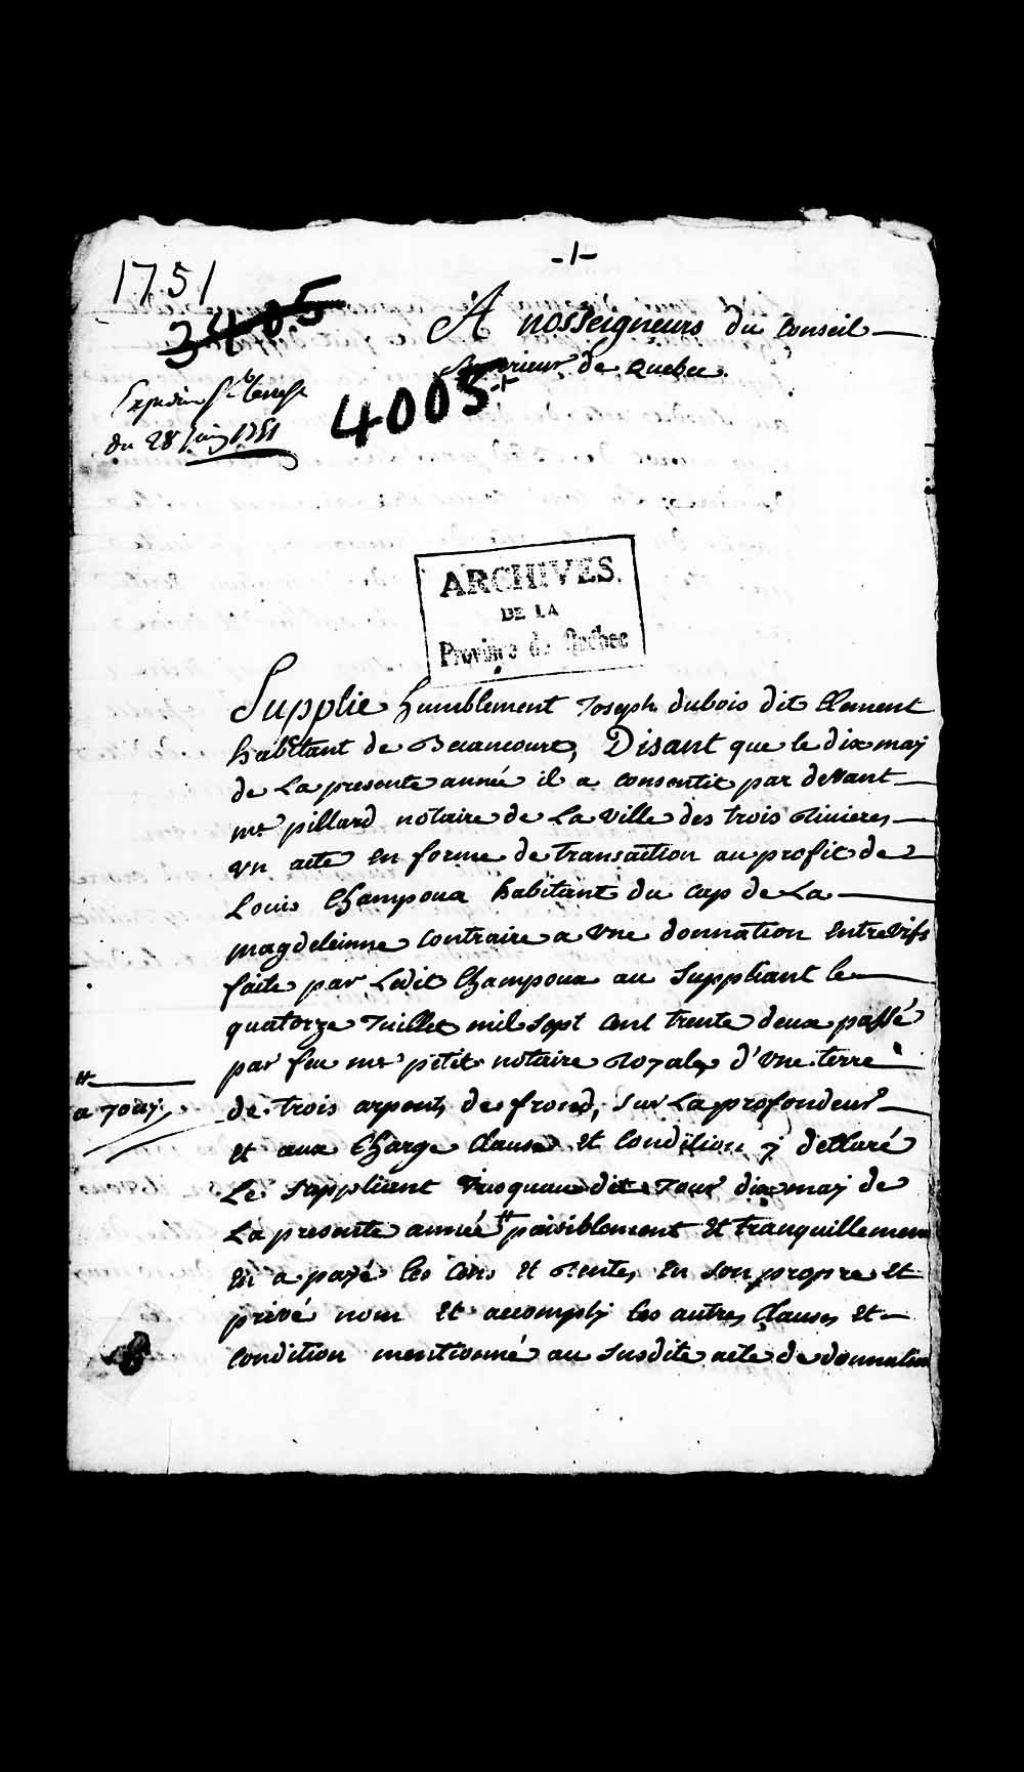 -1-
1751
3405
A nosseigneurs du Conseil
Superieur de Quebec.
4005
du 28 juin 1751
ARCHIVES
DE LA
Province de Québec
Supplie humblement Joseph dubois dit Clement
habitant de Becancourt, Disant que le dix maj
de La presente année il a consentit par devant
mr pillard notaire de La Ville des trois Rivieres
un acte en forme de transaction au profit de
Louis Champoua habitant du Cap de La
magdeleinne Contraire a une donnation entrevifs
faite par Ledit Champoua au Suppliant le
quatorze Juillet mil sept Cent trente deux passé
par feu mr petit notaire Royale d'une terre
de trois arpents de frond, sur La profondeur
et aux Charge Clause et Condition y declaré
Le Suppliant Jusquaudit Jour dix maj de
# a Jouy
La presente année # paisiblement et tranquillement
en a payé les Cens et Rentes en son propre et
privé nom et accomply les autres Clauses et
Condition mentionné au susdite acte de donnation